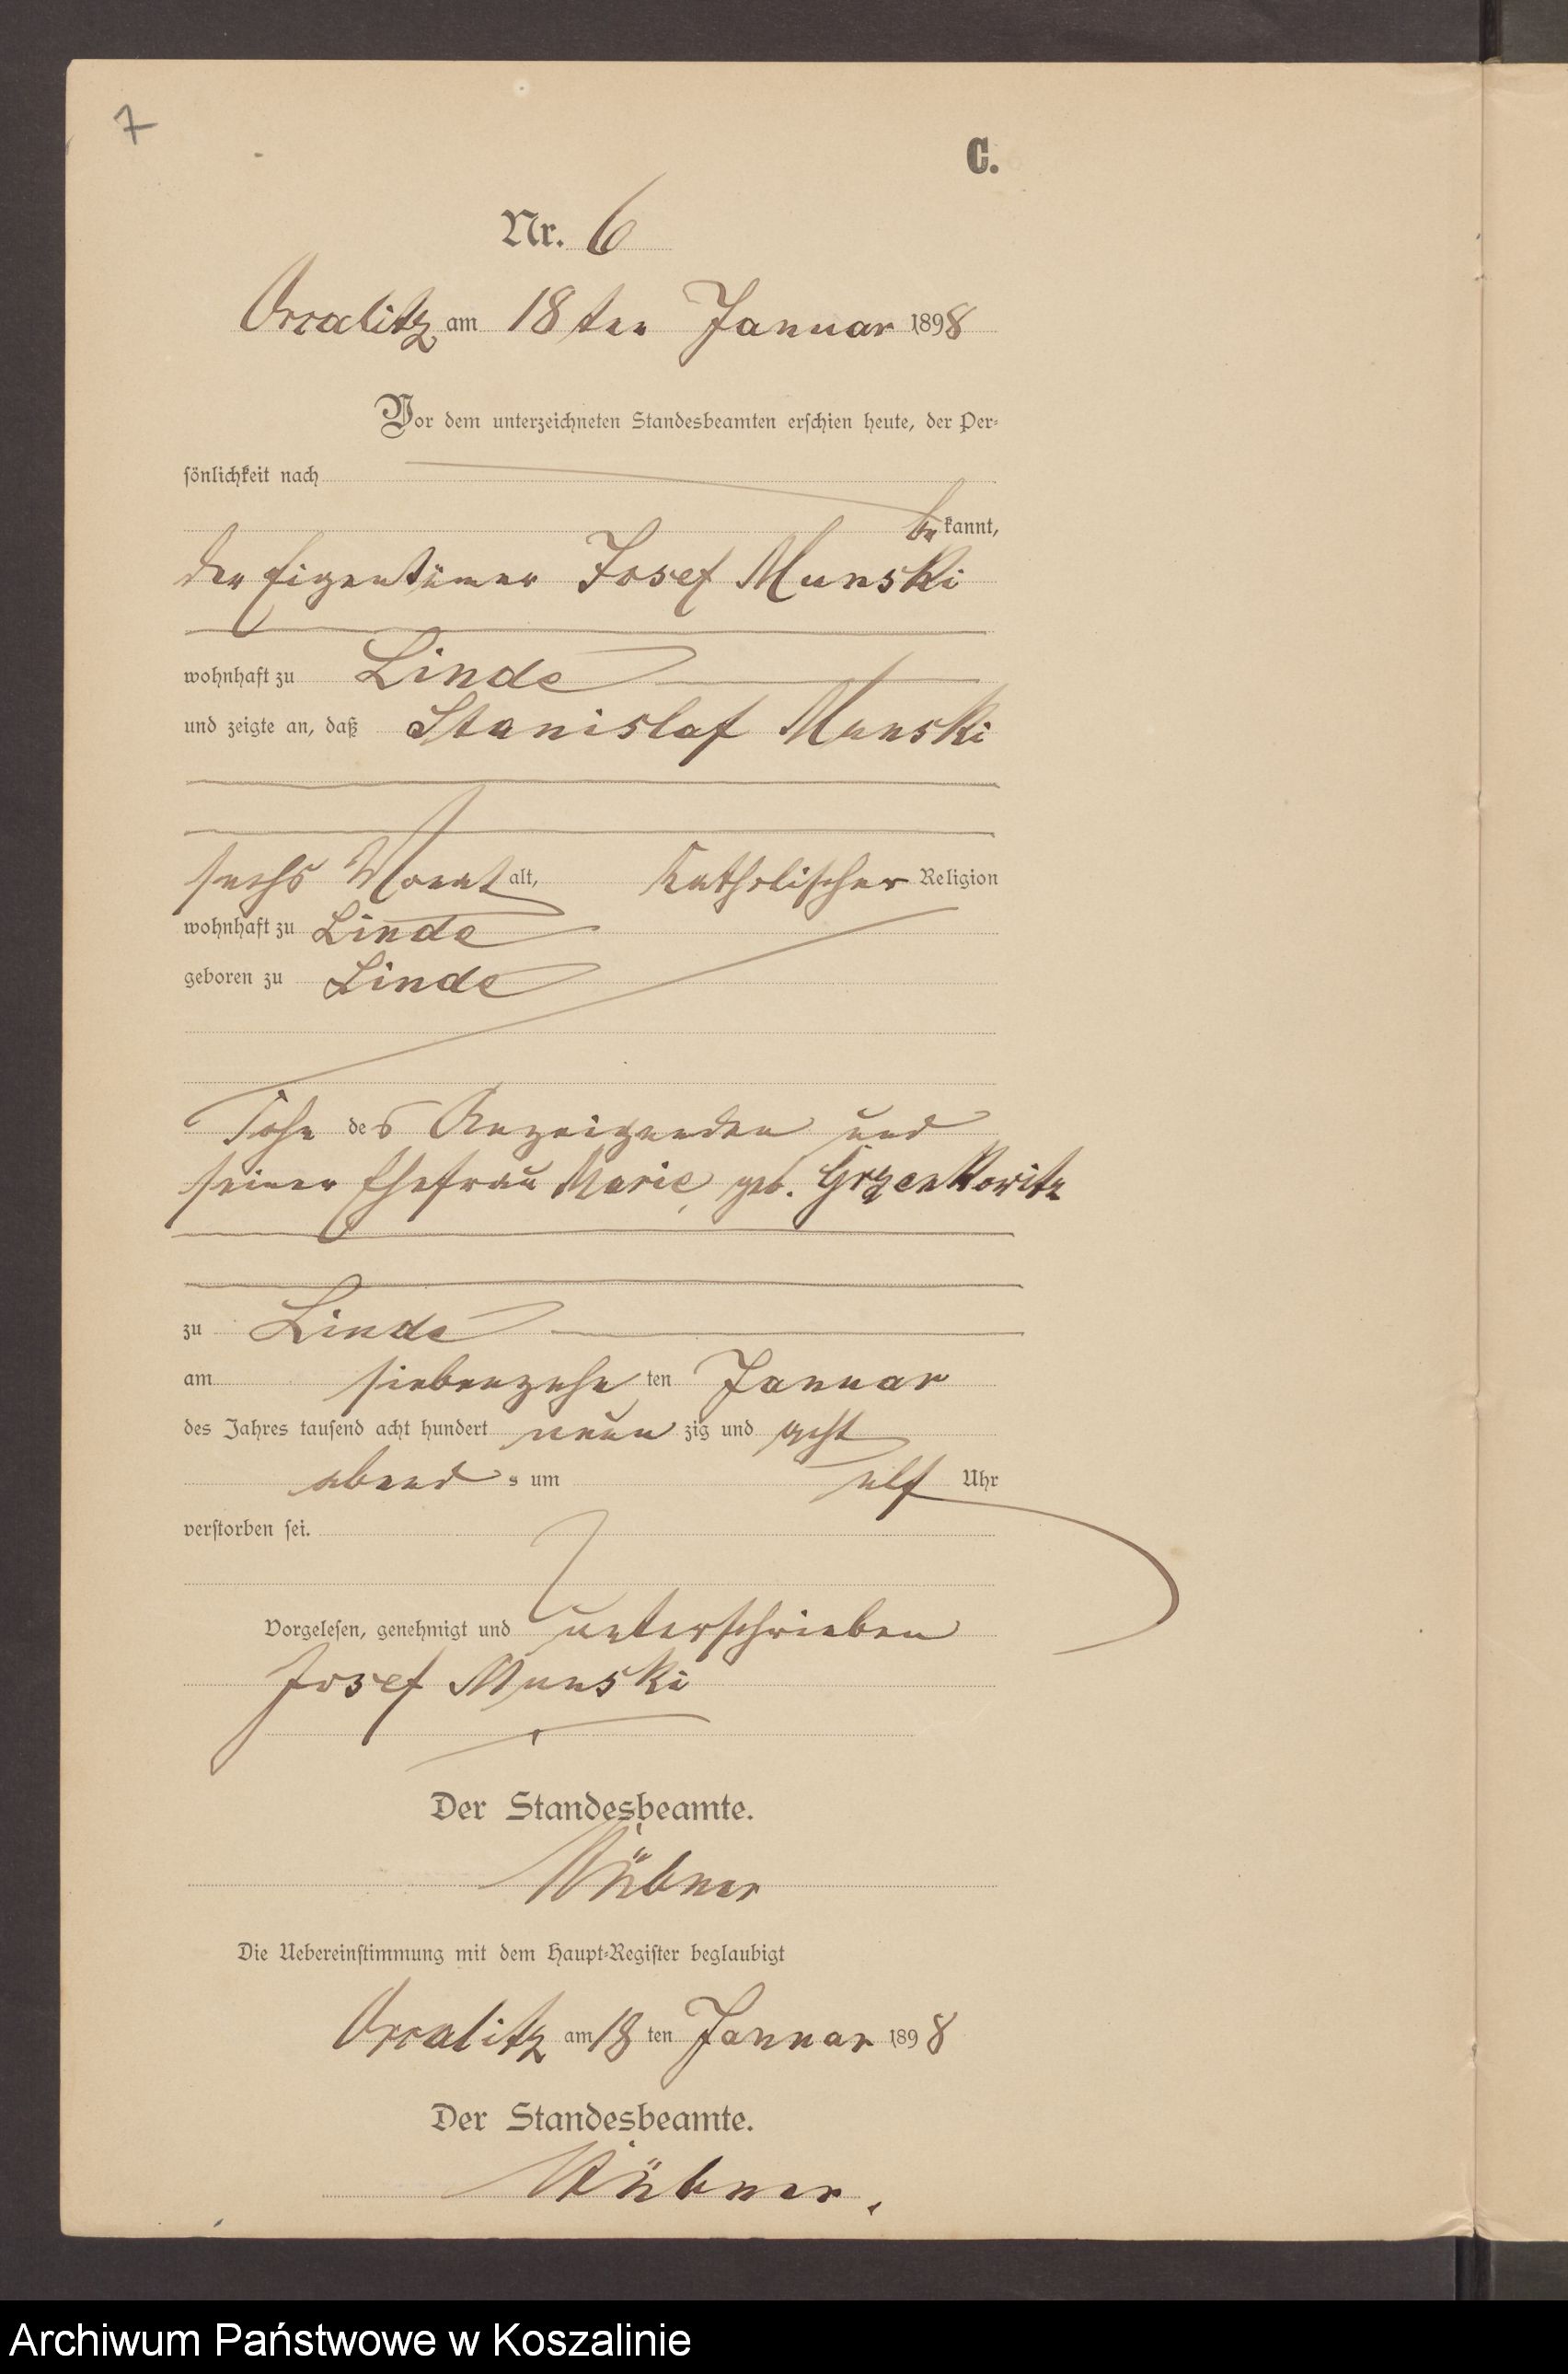 7
C.
Nr. 6
am 18ten Januar 1898
Vor dem unterzeichneten Standesbeamten erschien heute, der Per-
sönlichkeit nach
bekannt,
der Eigentümer Josef Munski
wohnhaft zu Linde
und zeigte an, daß Stanislaf Munski
sechs Monat alt, katholischer Religion
wohnhaft zu Linde
geboren zu Linde
Sohn des Anzeigenden und
seiner Ehefrau Marie, geb. Grzenkowitz
zu Linde
am siebenzehn ten Januar
des Jahres tausend acht hundert neun zig und acht
abend s um elf Uhr
verstorben sei.
Vorgelesen, genehmigt und unterschrieben
Josef Munski
Der Standesbeamte.
Die Uebereinstimmung mit dem Haupt-Register beglaubigt
am 18 ten Januar 1898
Der Standesbeamte.
Archiwum Państwowe w Koszalinie